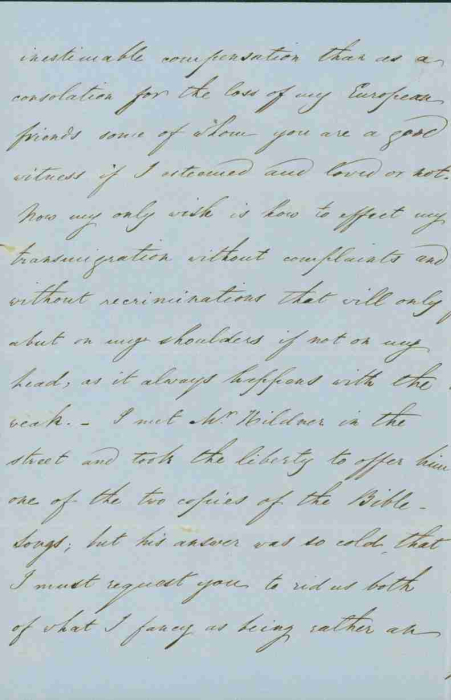 inestimable compensation than as a
consolation for the loss of my European
friends some of whom you are a good
witness if I esteemed and loved or not.
Now my only wish is how to effect my
transmigration without complaints and
without recriminations that will only
abut on my shoulders if not on my
head, as it always happens with the
weak. - I met Mr Wildner in the
street and took the liberty to offer him
one of the two copies of the Bible-
Songs; but his answer was so cold, that
I must request you to rid us both
of what I fancy as being rather an